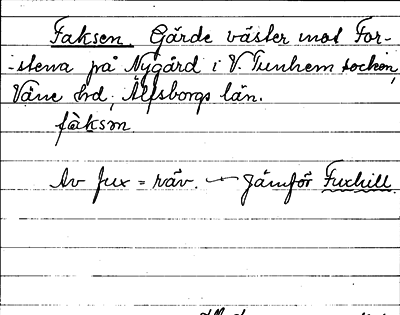 Faksen. Gärde väster mot For-
-stena på Nygård i V. Tunhem socken,
Väne hd, Älfsborgs län.
fàksən
Av fux = räv. — Jämför Fuxhill